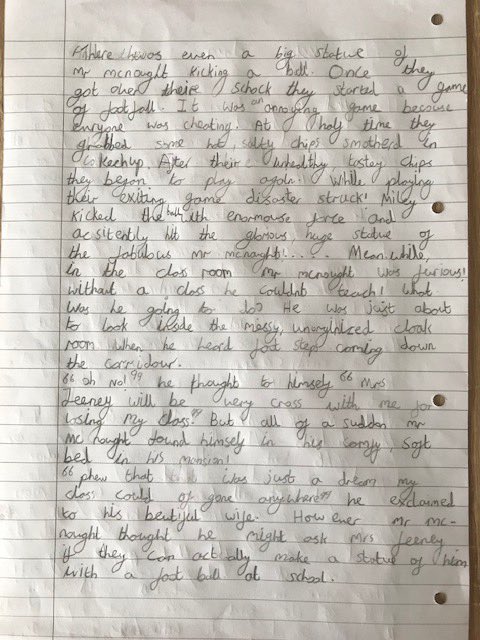 there was even a big statue of
mr mcnought kicking a ball. Once they
got over theire schock they started a game
of football. It was an annoying game because
everyone was cheating. At half time they
grabbed some hot, salty chips smotherd in
kechup. After their unhealthy tastey chips
they began to play again. While playing
their exiting game disaster struck! Miley
kicked the ball with enormouse force and
acsitently hit the glorious, huge statue of
the fabulous mr mcnaught!..... Mean while,
in the class room mr mcnought was furious!
without a class he couldnt teach! what
was he going to do? He was just about
to look inside the messy, unorginised cloak
room when he heard foot step coming down
the corridour.
"oh No!" he thought to himself "Mrs
Feeney will be very cross with me for
losing my class." But all of a sudden mr
mc nought found himself in his comfy, soft
bed in his mansion!
"phew that was just a dream my
class could of gone anywhere" he exclaimed
to his beutiful wife. How ever mr mc-
nought thought he might ask Mrs feeney
if they can actually make a statue of him
with a foot ball at school.